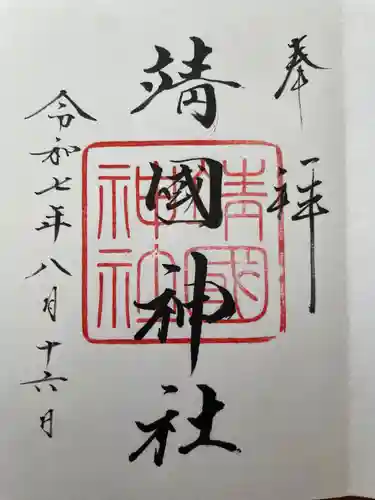 奉拝
靖國神社
靖國神社
令和七年八月十六日